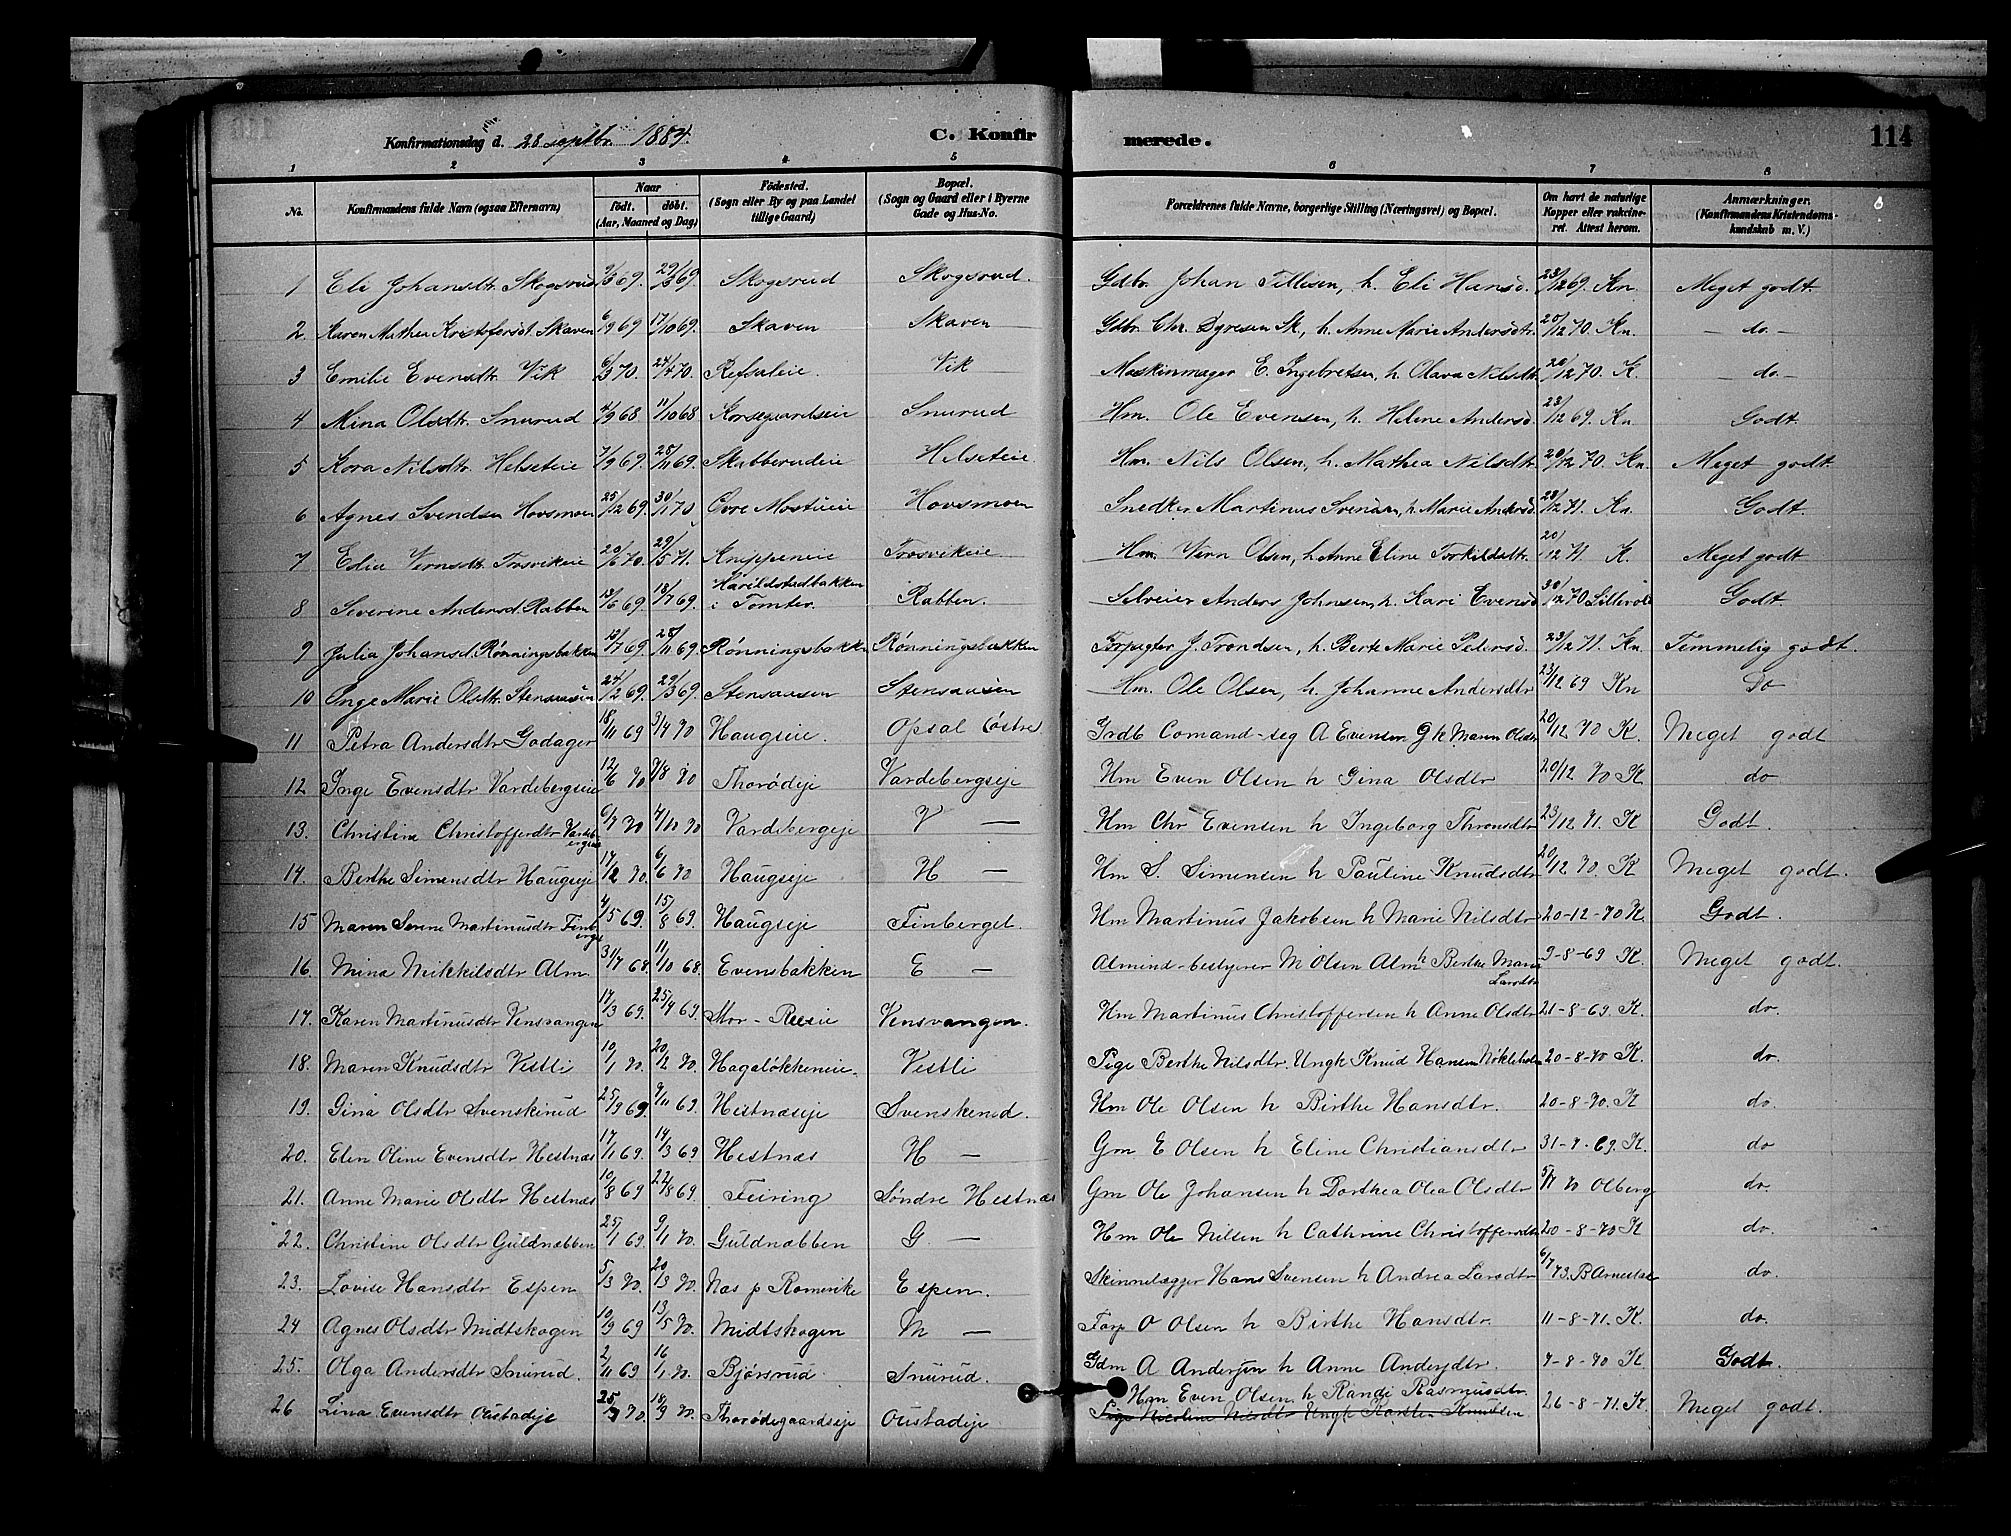 Konfirmationsdag d. 28 septbr. 1884.
C. Konfirmerede.
114
1 2 3 4 5 6 7 8
No. Konfirmandens fulde Navn (ogsaa Efternavn) Naar födt. döbt. (Aar, Maaned og Dag) Födested. (Sogn eller By og paa Landet tillige Gaard) Bopæl. (Sogn og Gaard eller i Byerne Gade og Hus-No. Forældrenes fulde Navne, borgerlige Stilling (Næringsvei) og Bopæl. Om havt de naturlige Kopper eller vakcineret. Attest herom. Anmærkninger. (Konfirmandens Kristendomskundskab m. V.)
1 Eli Johansdtr. Skogsrud 9/3 69. 29/3 69. Skogsrud Skogsrud. Gdbr. Johan Tillisen, h. Eli Hansd. 23/12 69. Kn. Meget godt.
2. Karen Mathea Kristofersdt. Skaven 6/9 69 17/10 69. Skaven Skaven Gdbr. Chr. Dyresen Sk., h. Anne Marie Andersdtr. 20/12 70. Kn. - do -
3 Emilie Evensdtr. Vik 6/3 70. 24/4 70. Refsaleie. Vik Maskinmager E. Ingebretsen, h. Olava Nilsdtr. 20/12 70. K. - do -
4 Mina Olsdtr. Snurud 4/9 68 11/10 68 Korsegaardseie Snurud Hm. Ole Evensen, h. Helene Andersd. 23/12 69. Kn Godt.
5 Kora Nilsdtr. Helseteie 7/9 69. 28/11 69. Skabberudeie Helseteie Hm. Nils Olsen, h. Mathea Nilsdtr. 20/12 70. Kn. Meget godt.
6 Agnes Svendsen Hovsmoen 25/12 69. 30/1 70 Øvre Mostueie Hovsmoen Snedker Martinus Svensen, h. Marie Andersd. 23/12 71. Kn. Godt.
7 Edia Vernsdtr. Trosvikeie 20/6 70. 29/5 71. Knippeneie Trosvikeie Hm. Vern Olsen, h. Anne Eline Torkildsdtr. 20/12 71 K. Meget godt.
8 Severine Andersd. Rabben 13/6 69. 18/7 69. Harildstadbakken i Tomter. Rabben. Selveier Anders Johnsen, h. Kari Evensd. 30/12 70 Godt.
9 Julia Johansd. Rønningsbakken 10/7 69. 28/11 69. Rønningsbakken Rønningsbakken Forpagter J. Trondsen, h. Berte Marie Petersd. 23/12 71. Kn Temmelig godt.
10 Inge Marie Olsdtr. Stensausen 24/2 69. 29/3 69. Stensausen Stensausen Hm. Ole Olsen, h. Johanne Andersdtr 23/12 69 Kn Do
11 Petra Andersdtr Godager 18/11 69 3/4 70 Haugseie. Opsal Østre Gadb Comand-seg A Evensen G h Maren Olsdtr 20/12 70 K. Meget godt
12 Inge Evensdtr Vardebergseie 12/6 70 7/8 70 Thorødeje Vardebergseje Hm Even Olsen h Gina Olsdtr 20/12 70 K do
13. Christine Christofferdtr Vardebergseie 6/9 70 4/10 70 Vardebergeje V — Hm Chr Evensen h Ingeborg Thronsdtr 23/12 71. K Godt.
14. Berthe Simensdtr Haugseje 17/2 70. 6/6 70 Haugseje H — Hm S. Simensen h Pauline Knudsdtr 20/12 70. K Meget godt.
15 Maren Serine Martinusdtr Finberget 4/5 69. 15/8 69. Haugseje Finberget. Hm Martinus Jakobsen h Marie Nilsdtr 20-12-70 K. Godt.
16. Mina Mikkilsdtr Alm 31/7 68. 11/10 68. Evensbakken E — Almind-bestyrer M Olsen Alm h Berthe Maria Larsdtr 9-8-69 K. Meget godt.
17. Karen Martinusdtr Vensvangen 17/3 69. 25/4 69. Stor-Reeeie Vensvangen. Hm Martinus Christoffersen h Anne Olsdtr 21-8-69 K. do.
18. Maren Knudsdtr Vestli 10/1 70. 20/2 70. Hagaløkkeneie. Vestli Pige Berthe Nilsdtr. Ungk Knud Hansen Nøkleholm 20-8-70 K. do.
19. Gina Olsdtr Svenskerud 25/9 69. 7/11 69. Hestnæseje Svenskerud. Hm Ole Olsen h Birthe Hansdtr. 20-8-70. K do.
20. Elen Oline Evensdtr Hestnæs 17/1 69. 14/3 69 Hestnæs H — Gm E Olsen h Eline Christiansdtr 31-7-69. K. do
21. Anne Marie Olsdtr Hestnæs 10/8 69 22/8 69. Feiring Søndre Hestnæs Gm Ole Johansen h Dorthea Olea Olsdtr Olberg do.
22. Christine Olsdtr Guldnæbben 25/1 69. 9/1 70. Guldnæbben G. — Hm Ole Nilsen h Cathrine Christoffersdtr 20-8-70 K do
23. Lovise Hansdtr Espen 5/3 70. 20/3 70. Næs p Romerike Espen. Skinnelægger Hans Svensen h Andrea Larsdtr 6/7 73. B Arnestad do.
24 Agnes Olsdtr Midtskogen 10/9 69 13/5 70. Midtskogen M — Forp O Olsen h Birthe Hansdtr. 11-8-71. K. do.
25. Olga Andersdtr Snurud. 2/11 69 16/1 70. Bjørsrud Snurud. Gdm A Andersen h Anne Andersdtr. 7-8-70 K Godt.
26 Lina Evensdtr Oustadeje 25/7 70. 18/9 70. Thorødegaardseje Oustadeje Hm Even Olsen h Randi Rasmusdtr. 26-8-71. K. Meget godt.
Pige Nicoline Nilsdtr Ungk Karsten Knudsen